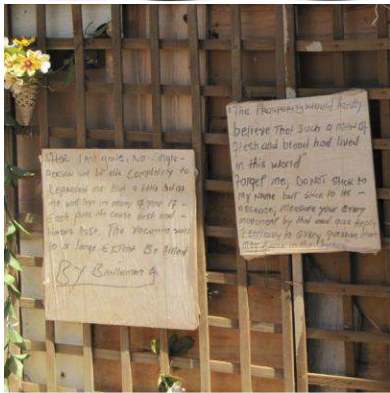 When I am gone, No single
person will be able completely to
represent me But a little bit of
me will live in many of you. If
Each puts the cause first and
himself last. The vacuum will
to a large Extent Be filled
By
The
believe That such a
flesh and blood had lived
in this world
Forget me, DO NOT stick to
my name But stick to its
essence, measure your Every
movement by that and
to Every question that